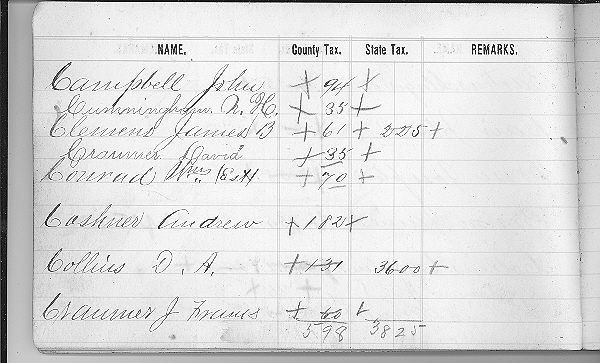 NAME. County Tax. State Tax. REMARKS.
Campbell John + 94 +
Cunningham A. H. + 35 +
Clemens James B + 61 + 225 +
Craumer David + 35 +
Conrad Wm (Est) + 70 +
Coshner Andrew + 182 +
Collins D. A. + 131 3600 +
Craumer J Francis + 60 +
598 3825